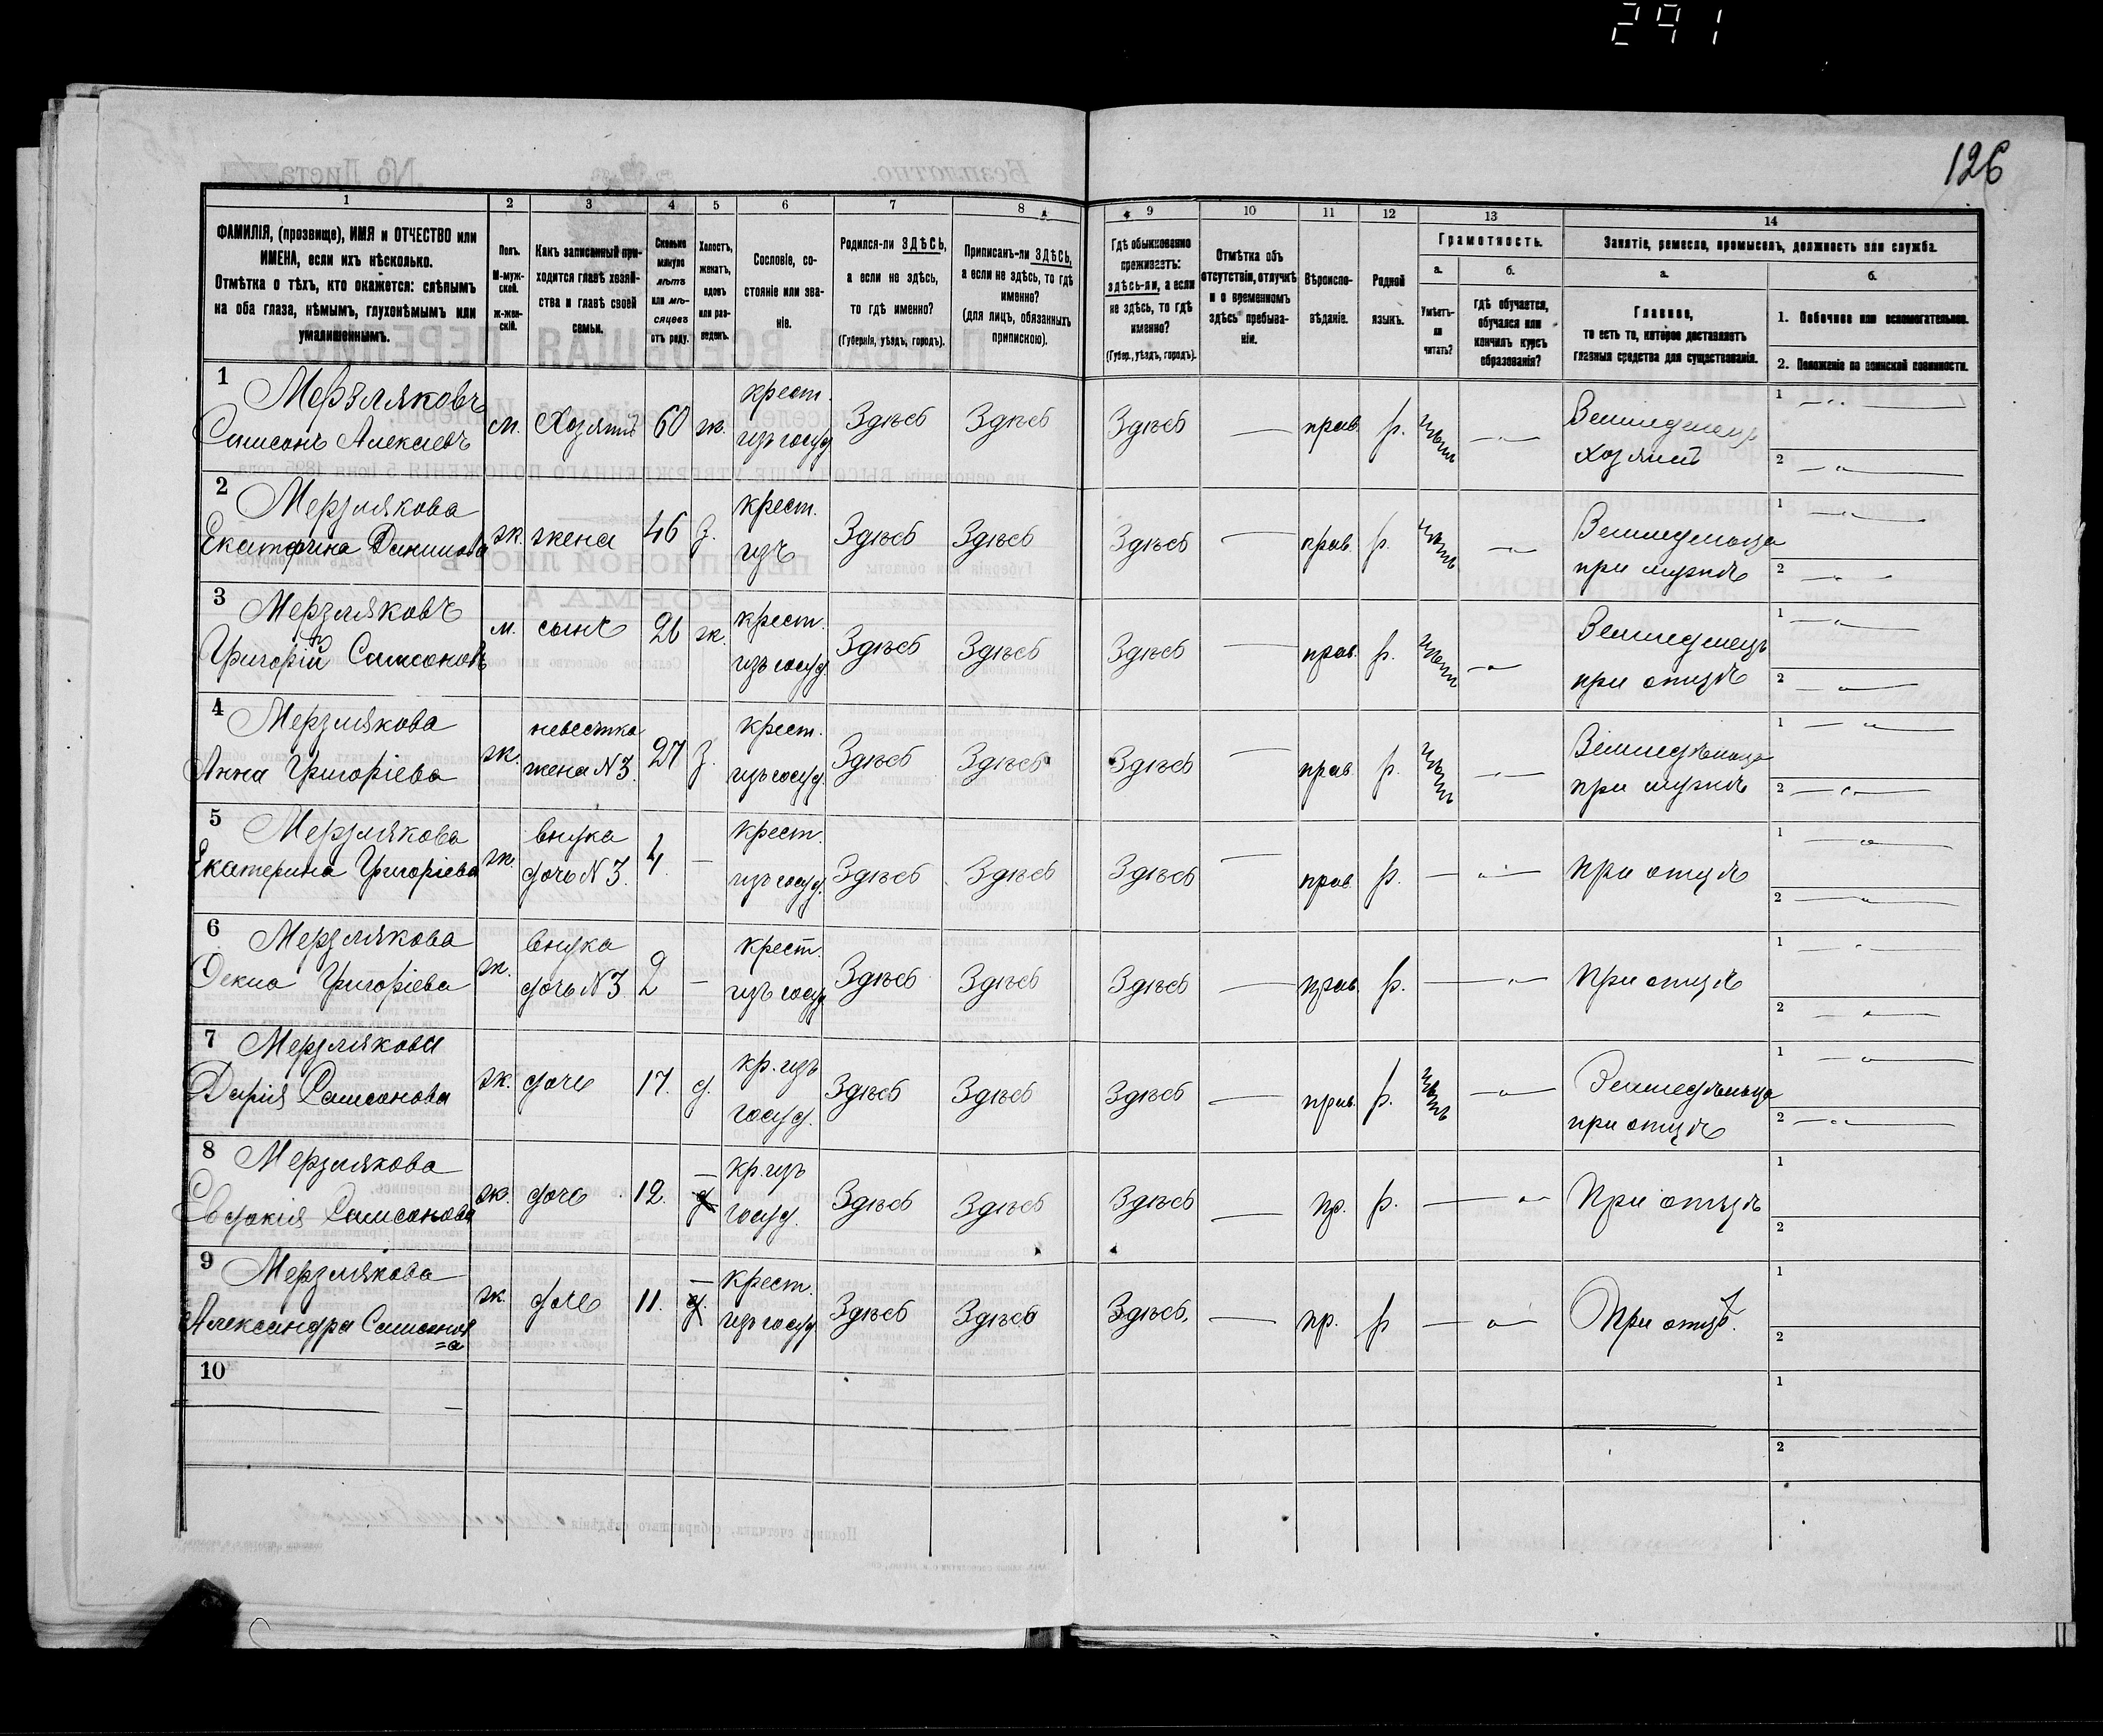 291
126
1 2 3 4 5 6 7 8 9 10 11 12 13 14
ФАМИЛІЯ, (прозвище), ИМЯ и ОТЧЕСТВО или
ИМЕНА, если ихъ нѣсколько.
Отмѣтка о тѣхъ, кто окажется: слѣпымъ
на оба глаза, нѣмымъ, глухонѣмымъ или
умалишеннымъ.
Полъ.
М-муж-
ской.
Ж-жен-
скій.
Какъ записанный при-
ходится главѣ хозяй-
ства и главѣ своей
семьи.
Сколько
минуло
лѣтъ
или мѣ-
сяцевъ
отъ роду.
Холостъ,
женатъ,
вдовъ
или раз-
веденъ.
Сословіе, со-
стояніе или зва-
ніе.
Родился-ли ЗДѢСЬ,
а если не здѣсь,
то гдѣ именно?
(Губернія, уѣздъ, городъ).
Приписанъ-ли ЗДѢСЬ,
а если не здѣсь, то гдѣ
именно?
(для лицъ, обязанныхъ
припискою).
Гдѣ обыкновенно
проживаетъ:
здѣсь-ли, а если
не здѣсь, то гдѣ
именно?
(Губер., уѣздъ, городъ).
Отмѣтка объ
отсутствіи, отлучкѣ
и о временномъ
здѣсь пребыва-
ніи.
Вѣроиспо-
вѣданіе.
Родной
языкъ.
Грамотность.
а.
Умѣетъ-
ли
читать?
б.
гдѣ обучается,
обучался или
кончилъ курсъ
образованія?
Занятіе, ремесло, промыселъ, должность или служба.
а.
Главное,
то есть то, которое доставляетъ
главныя средства для существованія.
б.
1. Побочное или вспомогательное.
2. Положеніе по воинской повинности.
1 Мерзляковъ крест. 1
Самсонъ Алексѣевъ м. Хозяинъ 60 ж. изъ госуд. Здѣсь Здѣсь Здѣсь — прав. р. — Земледѣлецъ
хозяинъ 2
2 Мерзлякова крест. 1
Екатерина Данилова ж. жена 46 з. изъ Здѣсь Здѣсь Здѣсь — прав. р. — Земледѣлица
при мужѣ 2
3 Мерзляковъ крест. 1
Григорій Самсоновъ м. сынъ 26 ж. изъ госуд. Здѣсь Здѣсь Здѣсь — прав. р. — Земледѣлецъ
при отцѣ 2
4 Мерзлякова невестка крест. 1
Анна Григоріева ж. жена N3. 27 з. изъ госуд. Здѣсь Здѣсь Здѣсь — прав. р. — Земледѣлица
при мужѣ 2
5 Мерзлякова внука крест. 1
Екатерина Григоріева ж. дочь N3. 4. — изъ госуд. Здѣсь Здѣсь Здѣсь — прав. р. — — при отцѣ 2
6 Мерзлякова внука крест. 1
Григоріева ж. дочь N3 2 — изъ госуд. Здѣсь Здѣсь Здѣсь — прав. р. — — При отцѣ 2
7 Мерзлякова кр. изъ 1
Дарія Самсонова ж. дочь 17. д. госуд. Здѣсь Здѣсь Здѣсь — прав. р. — Земледѣлица
при отцѣ 2
8 Мерзлякова кр. изъ 1
Евдокія Самсонова ж. дочь 12. — госуд. Здѣсь Здѣсь Здѣсь — пр. р. — — При отцѣ 2
9 Мерзлякова крест. 1
Александра Самсонов ж. дочь 11. — изъ госуд. Здѣсь Здѣсь Здѣсь. — пр. р — — При отцѣ. 2
=а
10 1
2